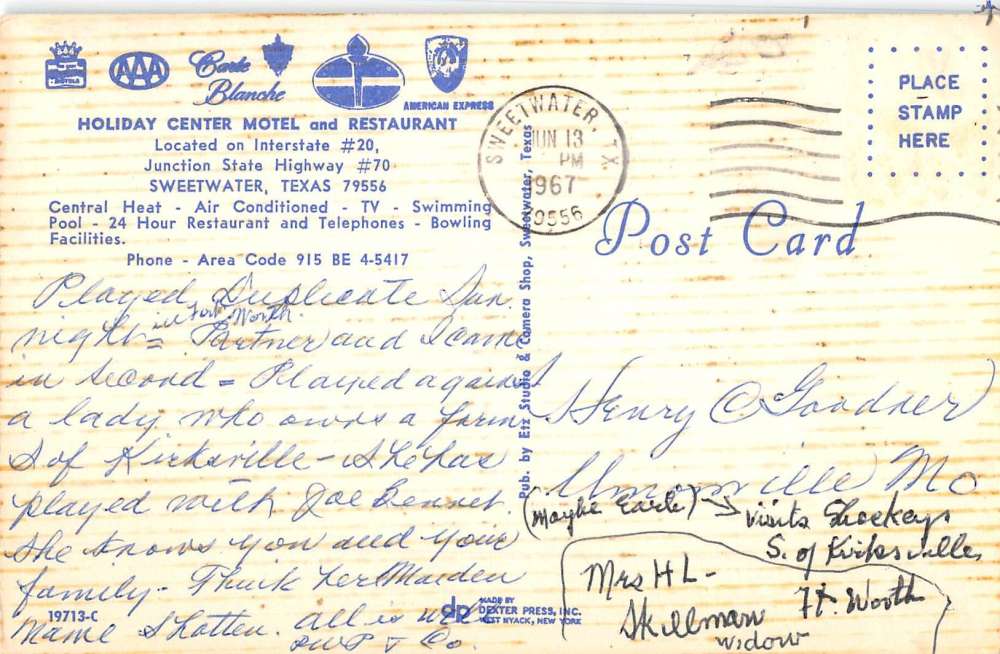 AAA
Carte
Blanche
AMERICAN EXPRESS
HOLIDAY CENTER MOTEL and RESTAURANT
Located on Interstate #20,
Junction State Highway #70
SWEETWATER, TEXAS 79556
Central Heat - Air Conditioned - TV - Swimming
Pool - 24 Hour Restaurant and Telephones - Bowling
Facilities.
Phone - Area Code 915 BE 4-5417
SWEETWATER, TX.
JUN 13
PM
1967
79556
PLACE
STAMP
HERE
Post Card
Pub. by Etz Studio & Camera Shop, Sweetwater, Texas
Played Duplicate Sun.
in Fort Worth.
night = Partner and I came
in second = Played against
a lady who owns a farm
S of Kirksville - She has
played with Joe Bennet.
She knows you and your
family - Think her Maiden
name Shotten. all is well
& Co.
Henry C Goodner
Unionville Mo
(Maybe Earle) → visits Shockeys
S. of Kirksville,
Mrs H L -
Skillman Ft. Worth
widow
19713-C
dp
MADE BY
DEXTER PRESS, INC.
WEST NYACK, NEW YORK